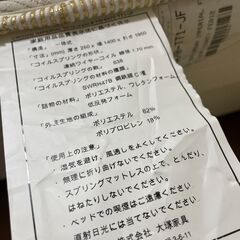 家庭用品品質表示法に基づく表示
「構造」 一体式
「寸法」 高さ 260 x 幅 1400 x 長さ 1950
「コイルスプリングの形状」
連続ワイヤーコイル 線径 1.70 mm
「コイルスプリングの数」 638
「コイルスプリングの材料」
SWRH47B 鋼鉄線C種
「詰物の材料」 ポリエステル、ウレタンフォーム
低反発フォーム
「外き生地の組成」 ポリエステル 82%
ポリプロピレン 18%
「使用上の注意」
湿気を避け、風通しを良くしてください。
無理に折り曲げないでください。
スプリングマットレスの上で、とんだり、
はねたりしないでください。
ベッドでの喫煙はご遠慮ください。
直射日光には当てないでください。
株式会社 大塚家具